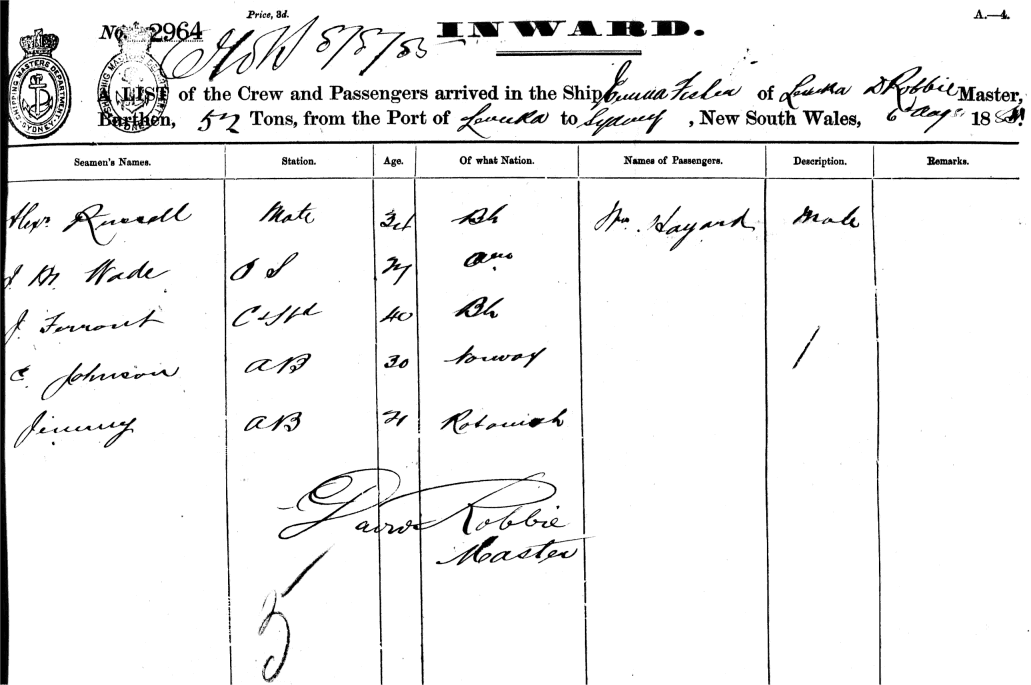 Price, 3d.
A.—4.
No. 2964
INWARD.
SHIPPING MASTERS DEPARTMENT SYDNEY
A LIST of the Crew and Passengers arrived in the Ship Emma Fisher of Levuka D Robbie Master,
Burthen, 52 Tons, from the Port of Levuka to Sydney, New South Wales, 6 Aug 188
Seamen's Names. Station. Age. Of what Nation. Names of Passengers. Description. Remarks.
Alexr Russell Mate Bh Wm Hayard Male
Wade O S
J. Ferront 40 Bh
C. Johnson AB 30 Norway /
Jimmy AB 21
David Robbie
Master
5